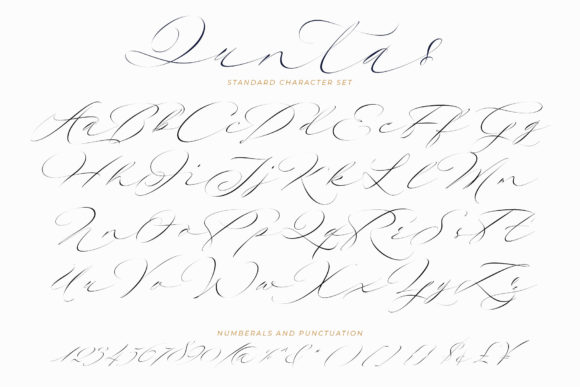 Quntas
STANDARD CHARACTER SET
Aa Bb Cc Dd Ee Ff Gg
Hh Ii Jj Kk Ll Mm
Nn Oo Pp Qq Rr Ss Tt
Uu Vv Ww Xx Yy Zz
NUMBERALS AND PUNCTUATION
1234567890